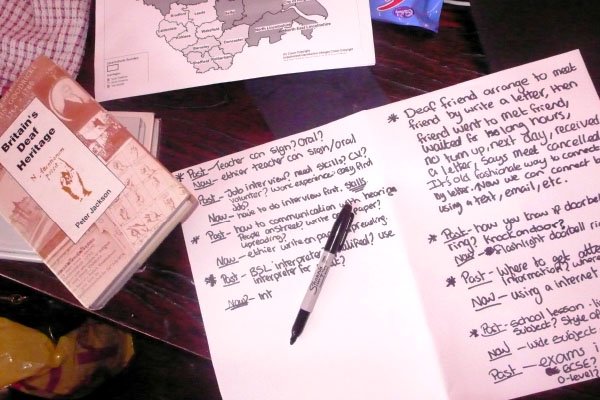 Britain's
Deaf
Heritage
Peter Jackson
* Past - Teacher can sign? Oral?
Now - ethier teacher sign/oral
* Past - Job interview? need skills? CV?
volunter? Work experience? easy find
job?
Now - have to do interview first, skills
* Past - how to communication with hearing
People on street? Write on paper?
Lipreading?
Now - ethier write on paper, lipreading.
* Past - BSL interpreter qualified? use
interpreter for
Now? - Int
* Deaf friend arrange to meet
friend by write a letter, then
friend went to met friend,
waited for too long hours,
no turn up, next day, received
a letter, says meet cancelled.
It's old fashionable way to connect
by letter. Now we can connect by
using a text, email, etc.
* Past - how you know if doorbell
ring? Knock on door?
Now - flashlight doorbell rin
* Past - Where to get
Information? where
Now - using a internet
* Past - school lesson - li
subject? Style of
Now - wide subject
Past - exams i
GCSE?
O-level?